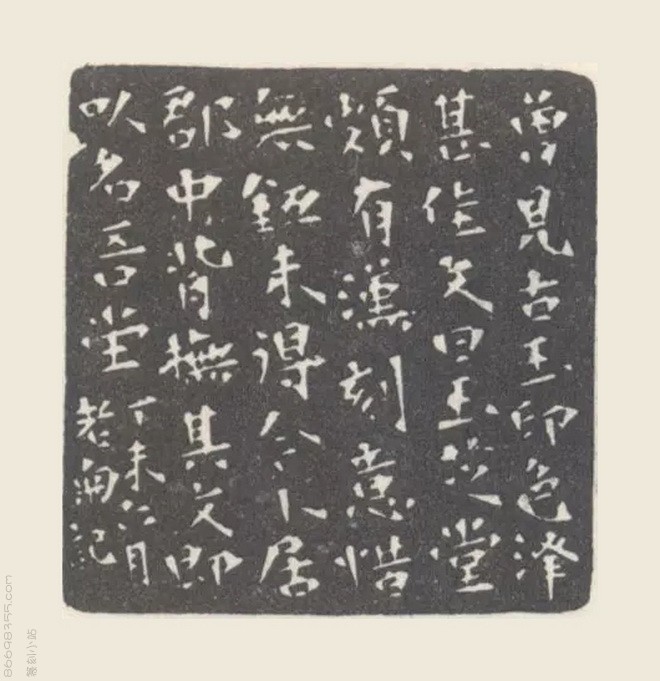 曾見古玉印色澤
甚佳文曰玉芝堂
頗有漢刻意惜
無鈕未得今卜居
郡中背撫其文即
以名吾堂
丁未六月
記
86698355.com
篆刻小站